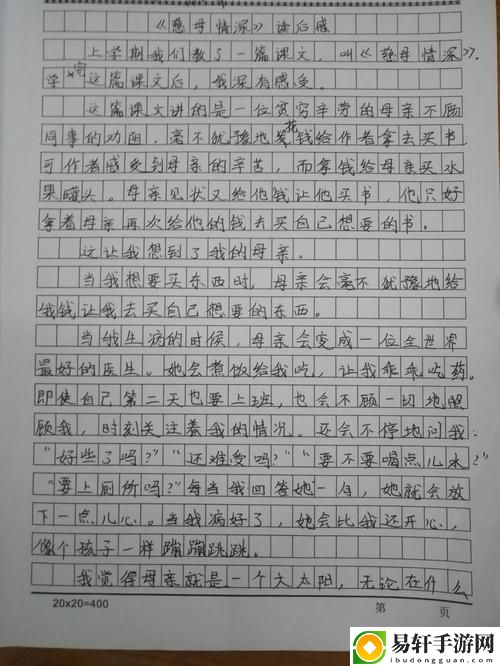 《慈母情深》读后感
上学期我们教了一篇课文，叫《慈母情深》.
学完这篇课文后，我深有感受。
这篇课文讲的是一位贫穷辛劳的母亲不顾
同事的劝阻，毫不犹豫地花钱给作者拿去买书
可作者感受到母亲的辛苦，而拿钱给母亲买水
果罐头。母亲见状又给他钱让他买书，他只好
拿着母亲再次给他的钱去买自己想要的书。
这让我想到了我的母亲。
当我想要买东西时，母亲会毫不犹豫地给
我钱让我去买自己想要的东西。
当我生病的时候，母亲会变成一位全世界
最好的医生。她会煮饭给我吃，让我乖乖吃药。
即使自己第二天也要上班，也会不顾一切地照
顾我，时刻关注着我的情况。还会不停地问我：
“好些了吗？”“还难受吗？”“要不要喝点儿水？”
“要上厕所吗？”每当我回答她一句，她就会放
下一点儿心。当我病好了，她会比我还开心，
像个孩子一样蹦蹦跳跳。
我觉得母亲就是一个大太阳，无论在什么
20x20=400 第 页
易轩手游网
www.yixuanguan.com